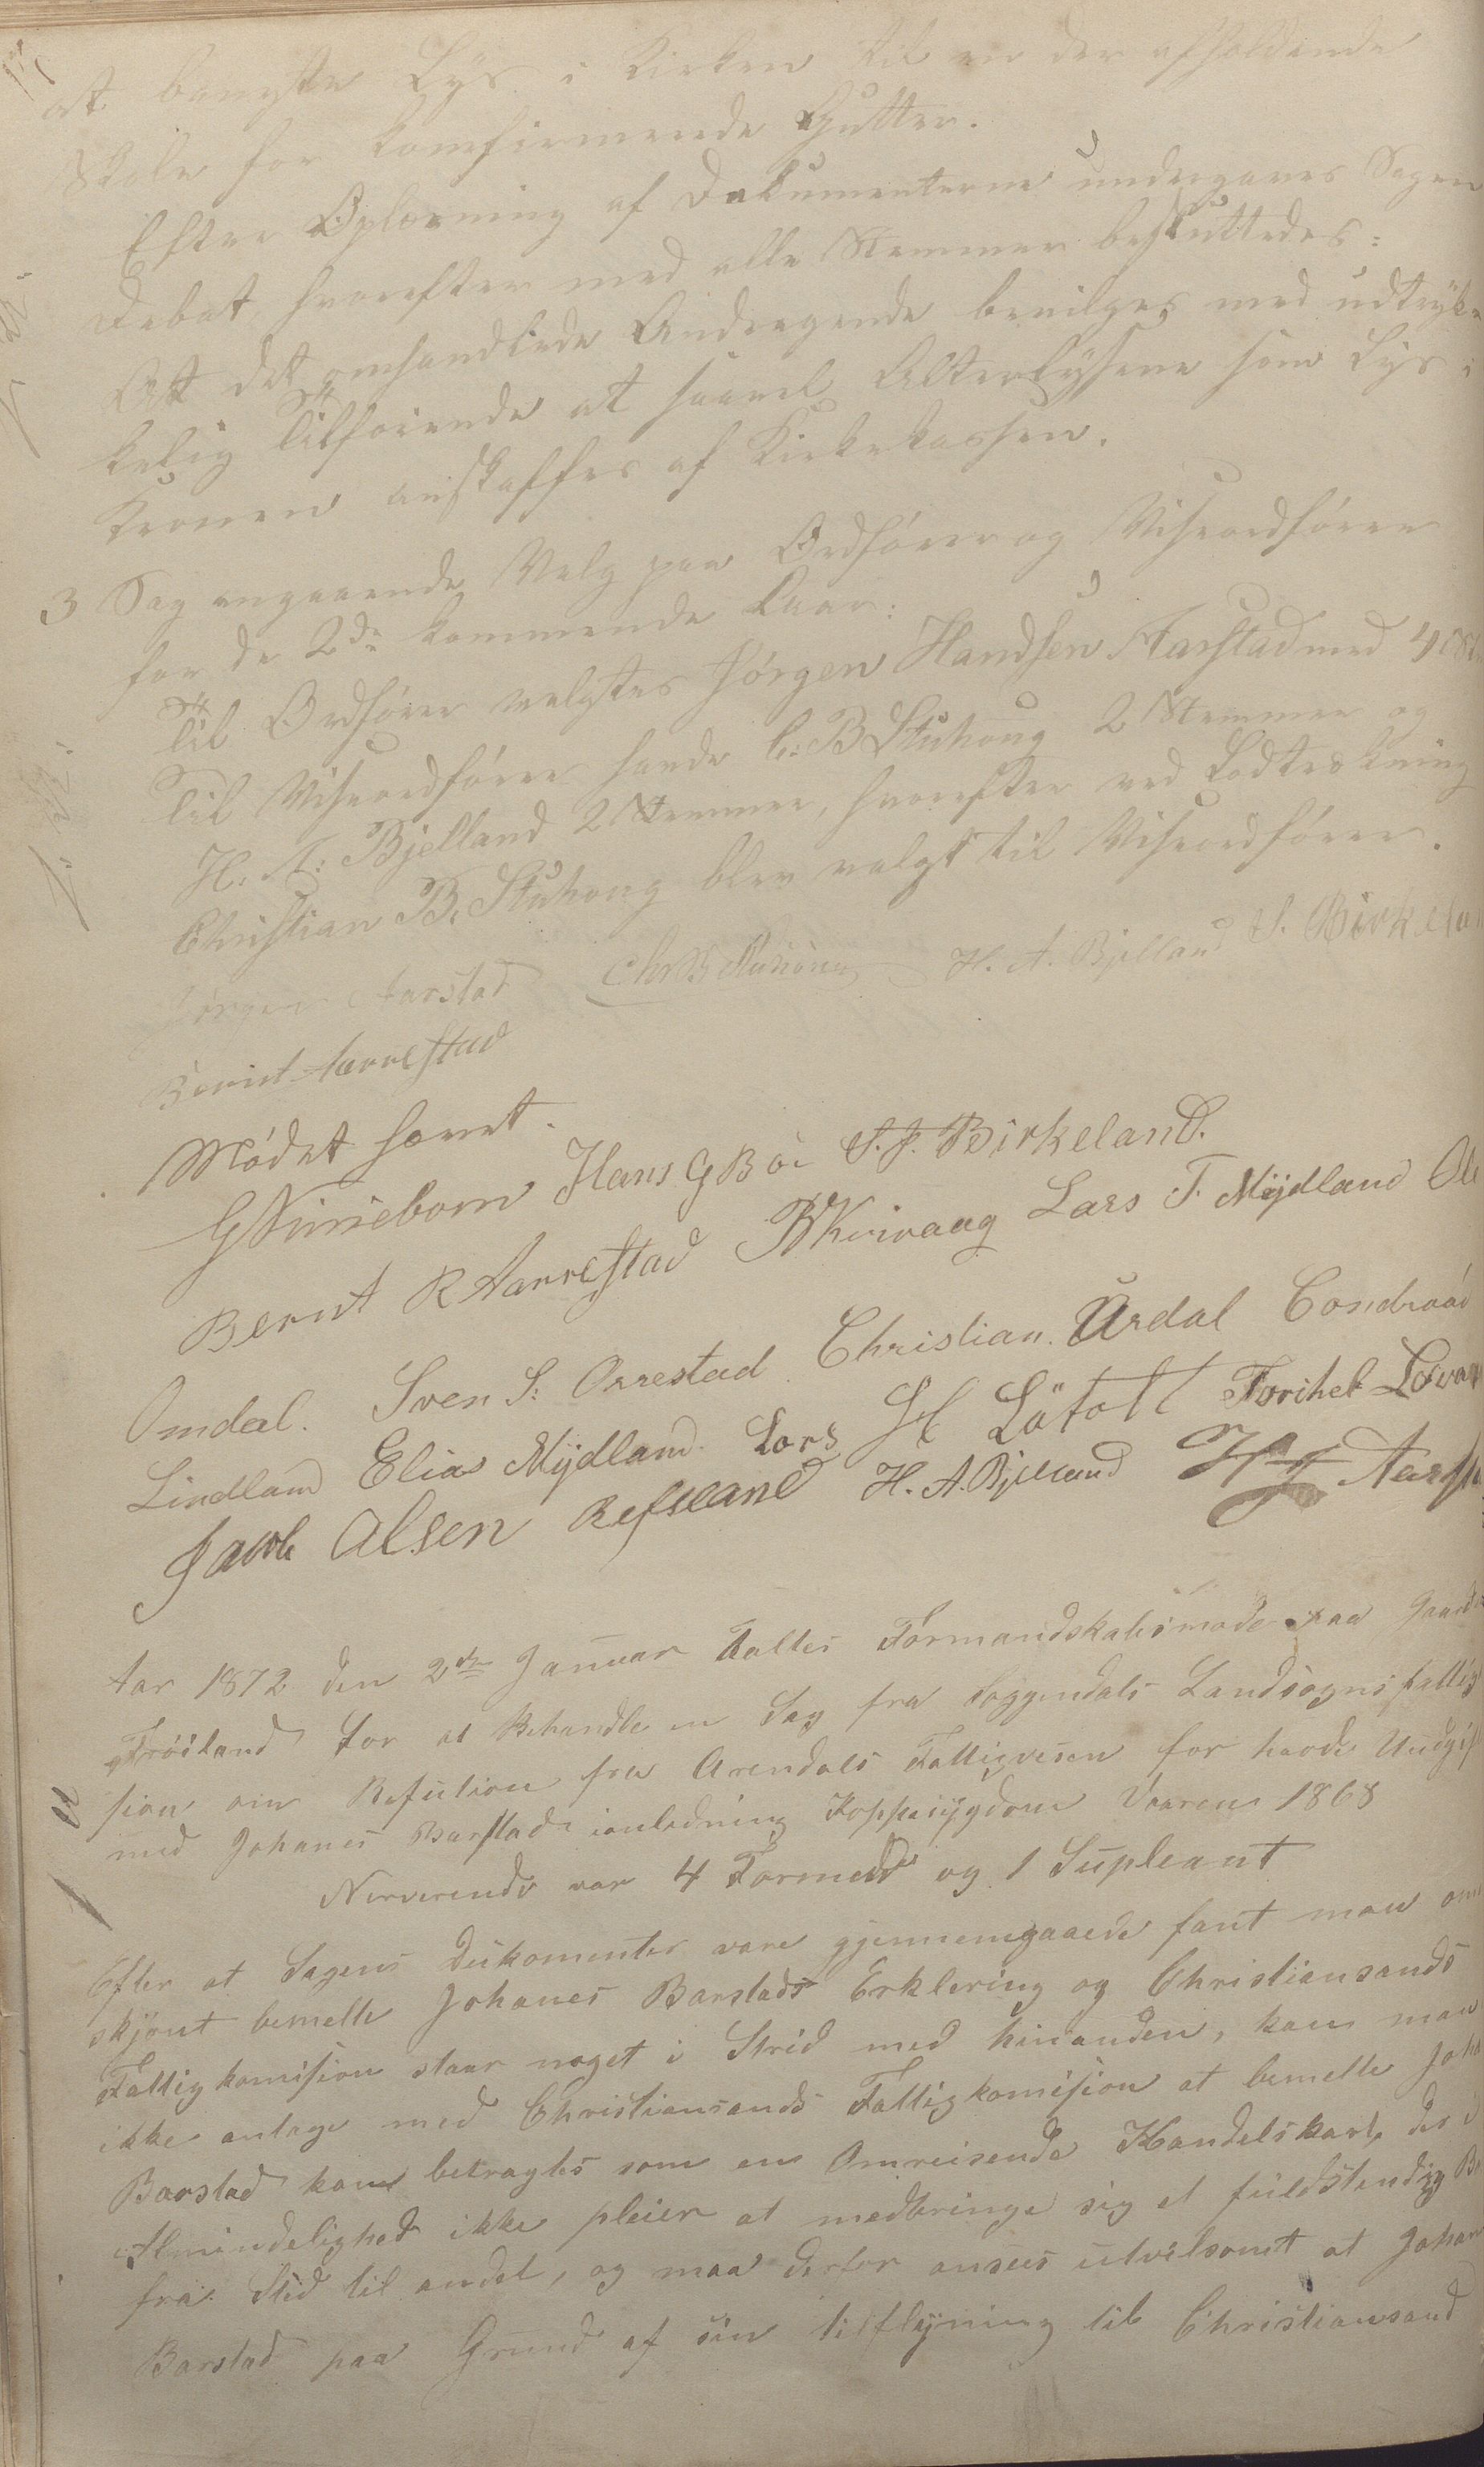 at benytte Lys i Kirken til en der afholdende
Skole for konfirmerede Gutter.
Efter Oplæsning af Dokumenterne undergaves Sagen
Debat, hvorefter med alle Stemmer besluttedes:
At det omhandlede Andragende bevilges med udtryk-
kelig Tilføiende at saavel Alterlysene som Lys i
Kronen anskaffes af Kirkekassen.
3 Sag angaaende Valg paa Ordfører og Viseordfører
for de 2de kommende Aar:
Til Ordfører valgtes Jørgen Handsen Aarstad med 4
Til Viseordfører havde C. B Stuhoug 2 Stemmer og
H. A. Bjelland 2 Stemmer, hvorefter ved Lodtrekning
Christian B. Stuhoug blev valgt til Viseordfører.
Jørgen Aarstad Chr B Stuhoug H. A. Bjelland S. Birkeland
Bernt Aarrestad
Mødet hævet.
Hans G Bøe S. J. Birkeland.
Bernt R Aarrestad B Kvivaag Lars T. Mydland Ole
Omdal. Sven S: Orrestad Christian Urdal Condraad
Lindland Elias Mydland. Lars H Løtoft Torikel
Jacob Olsen Refsland H. A. Bjelland Aarst
Aar 1872 den 2de Januar holtes Formandskabsmøde paa Gaarden
Frøiland for at Behandle en Sag fra Soggendals Landsogns fattig
sion om Refution fra Arendals Fattigvesen for havde Undgif
med Johanes Barstad ianledning Koppesygdom Vaaren 1868
Nerverende var 4 Formend og 1 Supleant
Efter at Sagens Dukomenter vare gjennemgaaede fant man om
skjønt bemelte Johanes Barstads Erklering og Christiansands
Fattigkomision staar noget i Strid med hinanden, kan man
ikke antage med Christiansands Fattigkomision at bemelte Joha
Barstad kan betragtes som en Omreisende Handelskarl, der i
Almindelighed ikke pleier at medbringe sig et fuldstendig B
fra Sted til andet, og maa derfor ansees utvilsomt at Johan
Barstad paa Grund af sin tilflytning til Christiansand